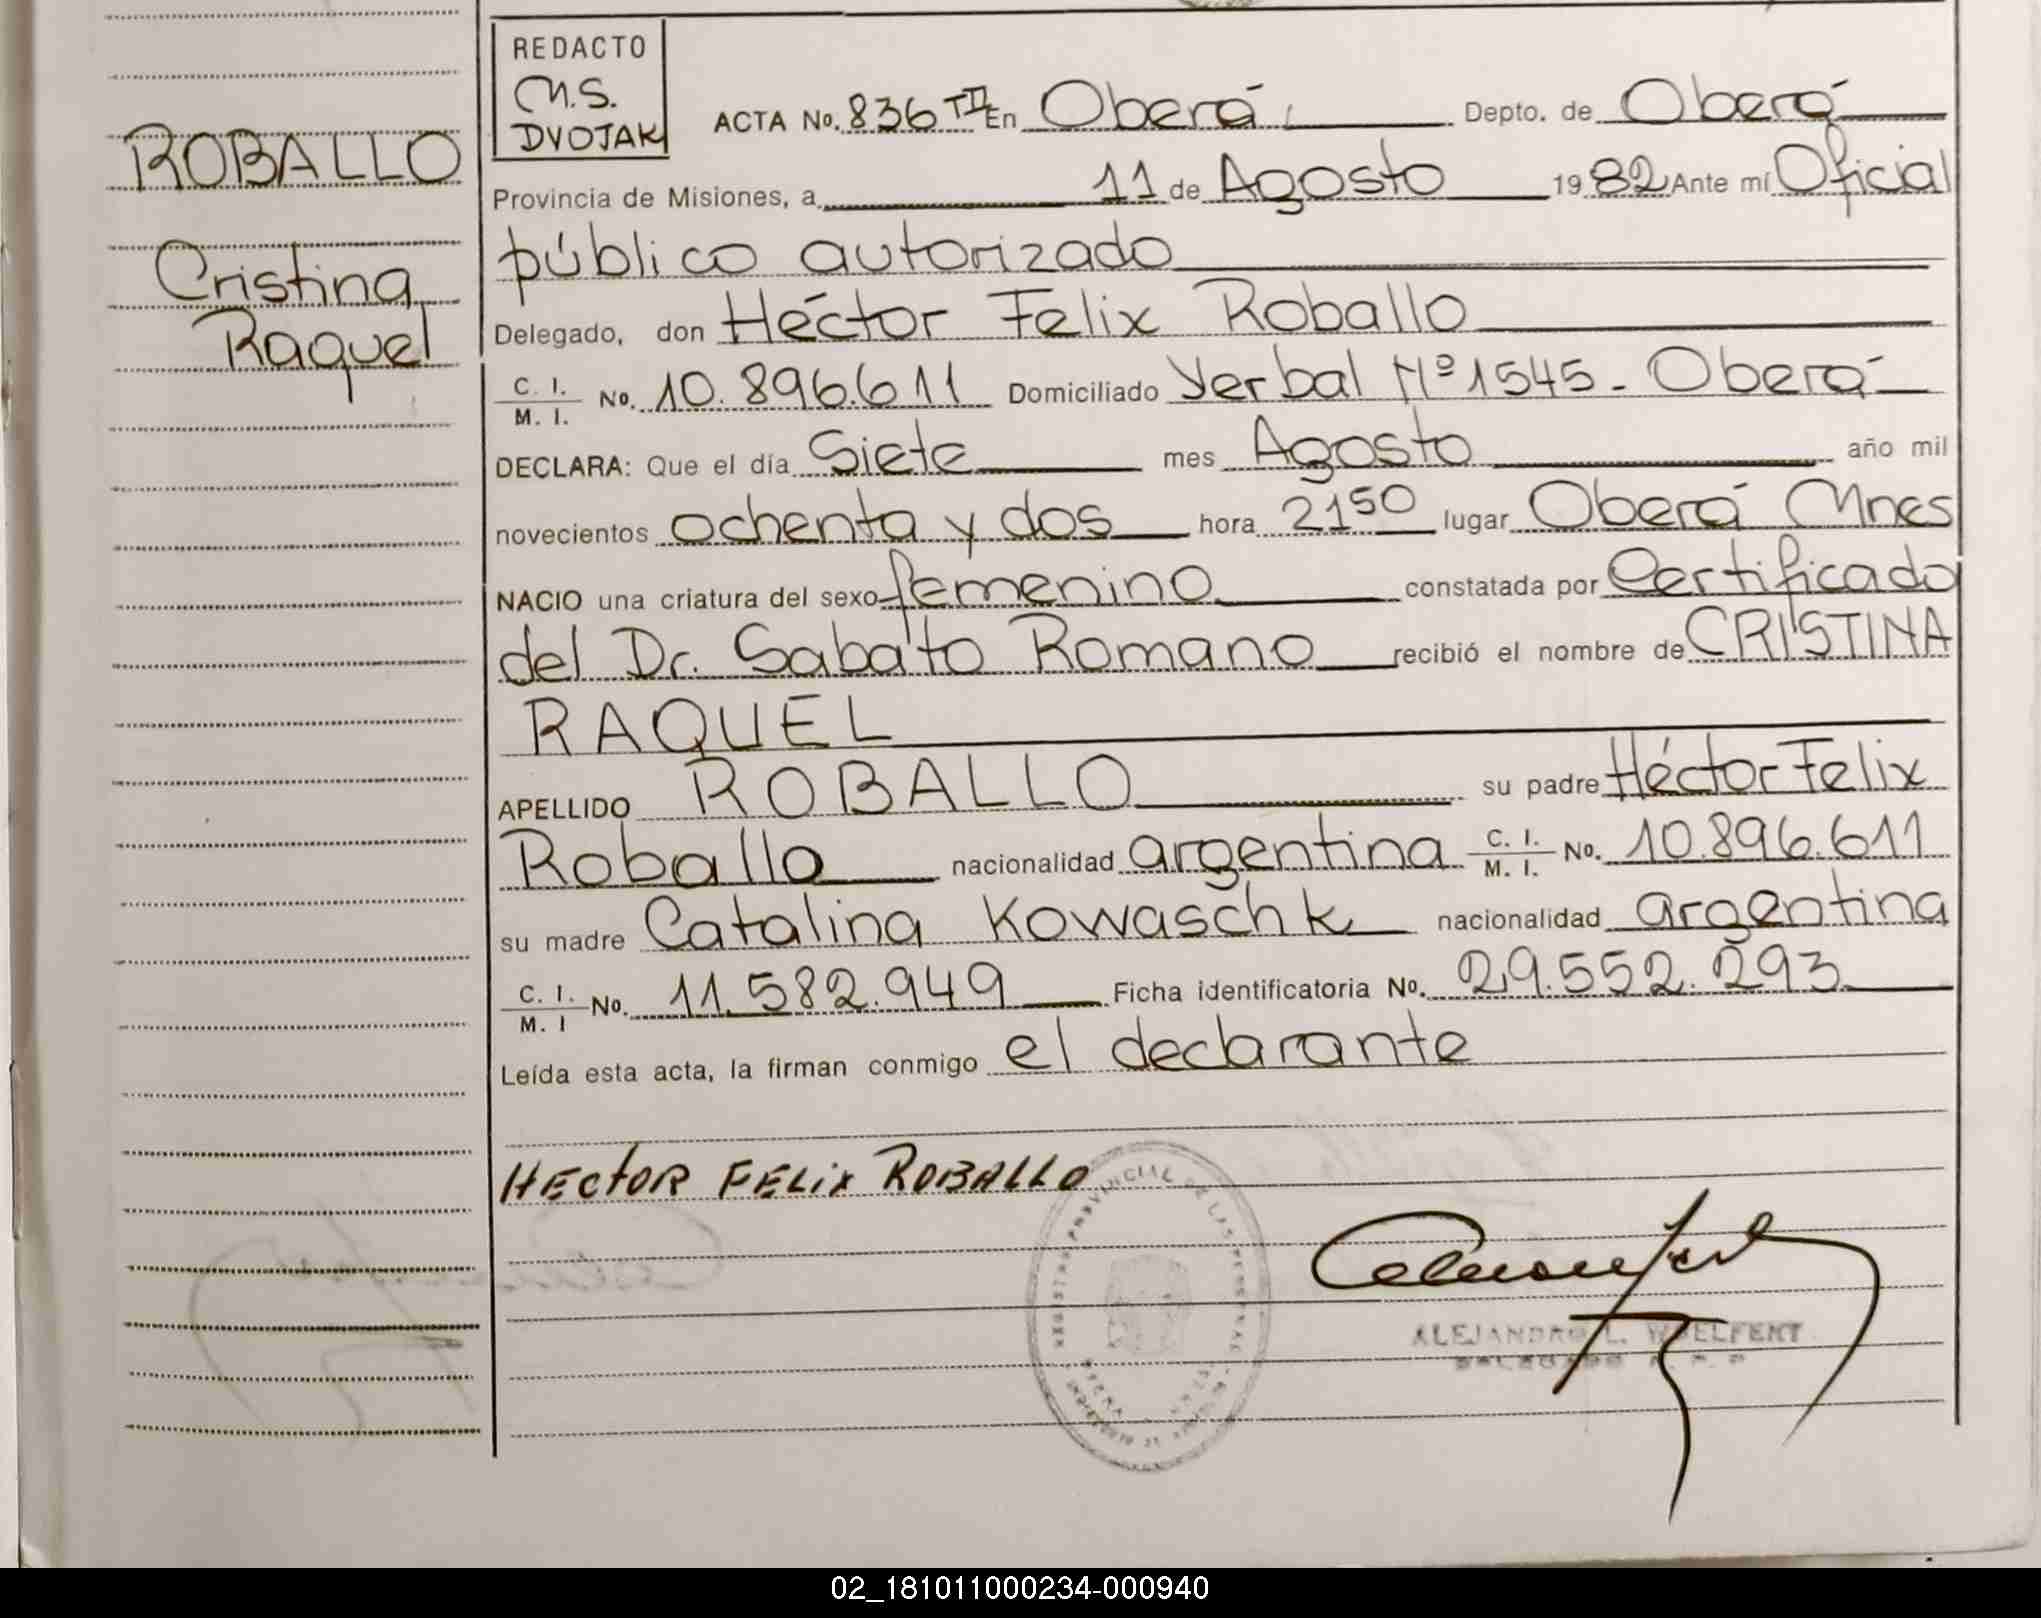 REDACTO
M.S.
DVOJAK
ROBALLO
Cristina
Raquel
ACTA No. 836 TII En Oberá, Depto. de Oberá
Provincia de Misiones, a 11 de Agosto 1982 Ante mí Oficial
público autorizado
Delegado, don Héctor Felix Roballo
C. I. / M. I. No. 10.896.611 Domiciliado Yerbal Nº 1545 - Oberá
DECLARA: Que el día Siete mes Agosto año mil
novecientos ochenta y dos hora 21 50 lugar Oberá Mnes
NACIO una criatura del sexo femenino constatada por Certificado
del Dr. Sabato Romano recibió el nombre de CRISTINA
RAQUEL
APELLIDO ROBALLO su padre Héctor Felix
Roballo nacionalidad argentina C. I. / M. I. No. 10.896.611
su madre Catalina Kowaschk nacionalidad argentina
C. I. / M. I No. 11.582.949 Ficha identificatoria No. 29.552.293
Leída esta acta, la firman conmigo el declarante
HECTOR FELIX ROBALLO
REGISTRO PROVINCIAL DE LAS PERSONAS
ALEJANDRO L. WOELFERT
DELEGADO
02_181011000234-000940